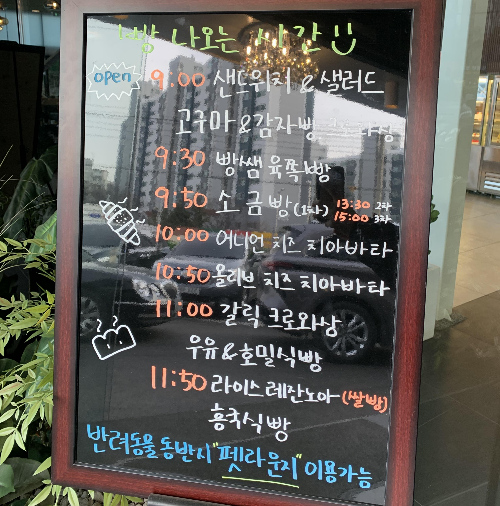 빵 나오는 시간
open 9:00 샌드위치 & 샐러드
고구마&감자빵 크로와상
9:30 빵쌤 육쪽빵
9:50 소금빵(1차) 13:30 2차
15:00 3차
10:00 어니언 치즈 치아바타
10:50 올리브 치즈 치아바타
11:00 갈릭 크로와상
우유&호밀식빵
11:50 라이스레잔노아(쌀빵)
흥국식빵
반려동물 동반시 "펫라운지" 이용가능